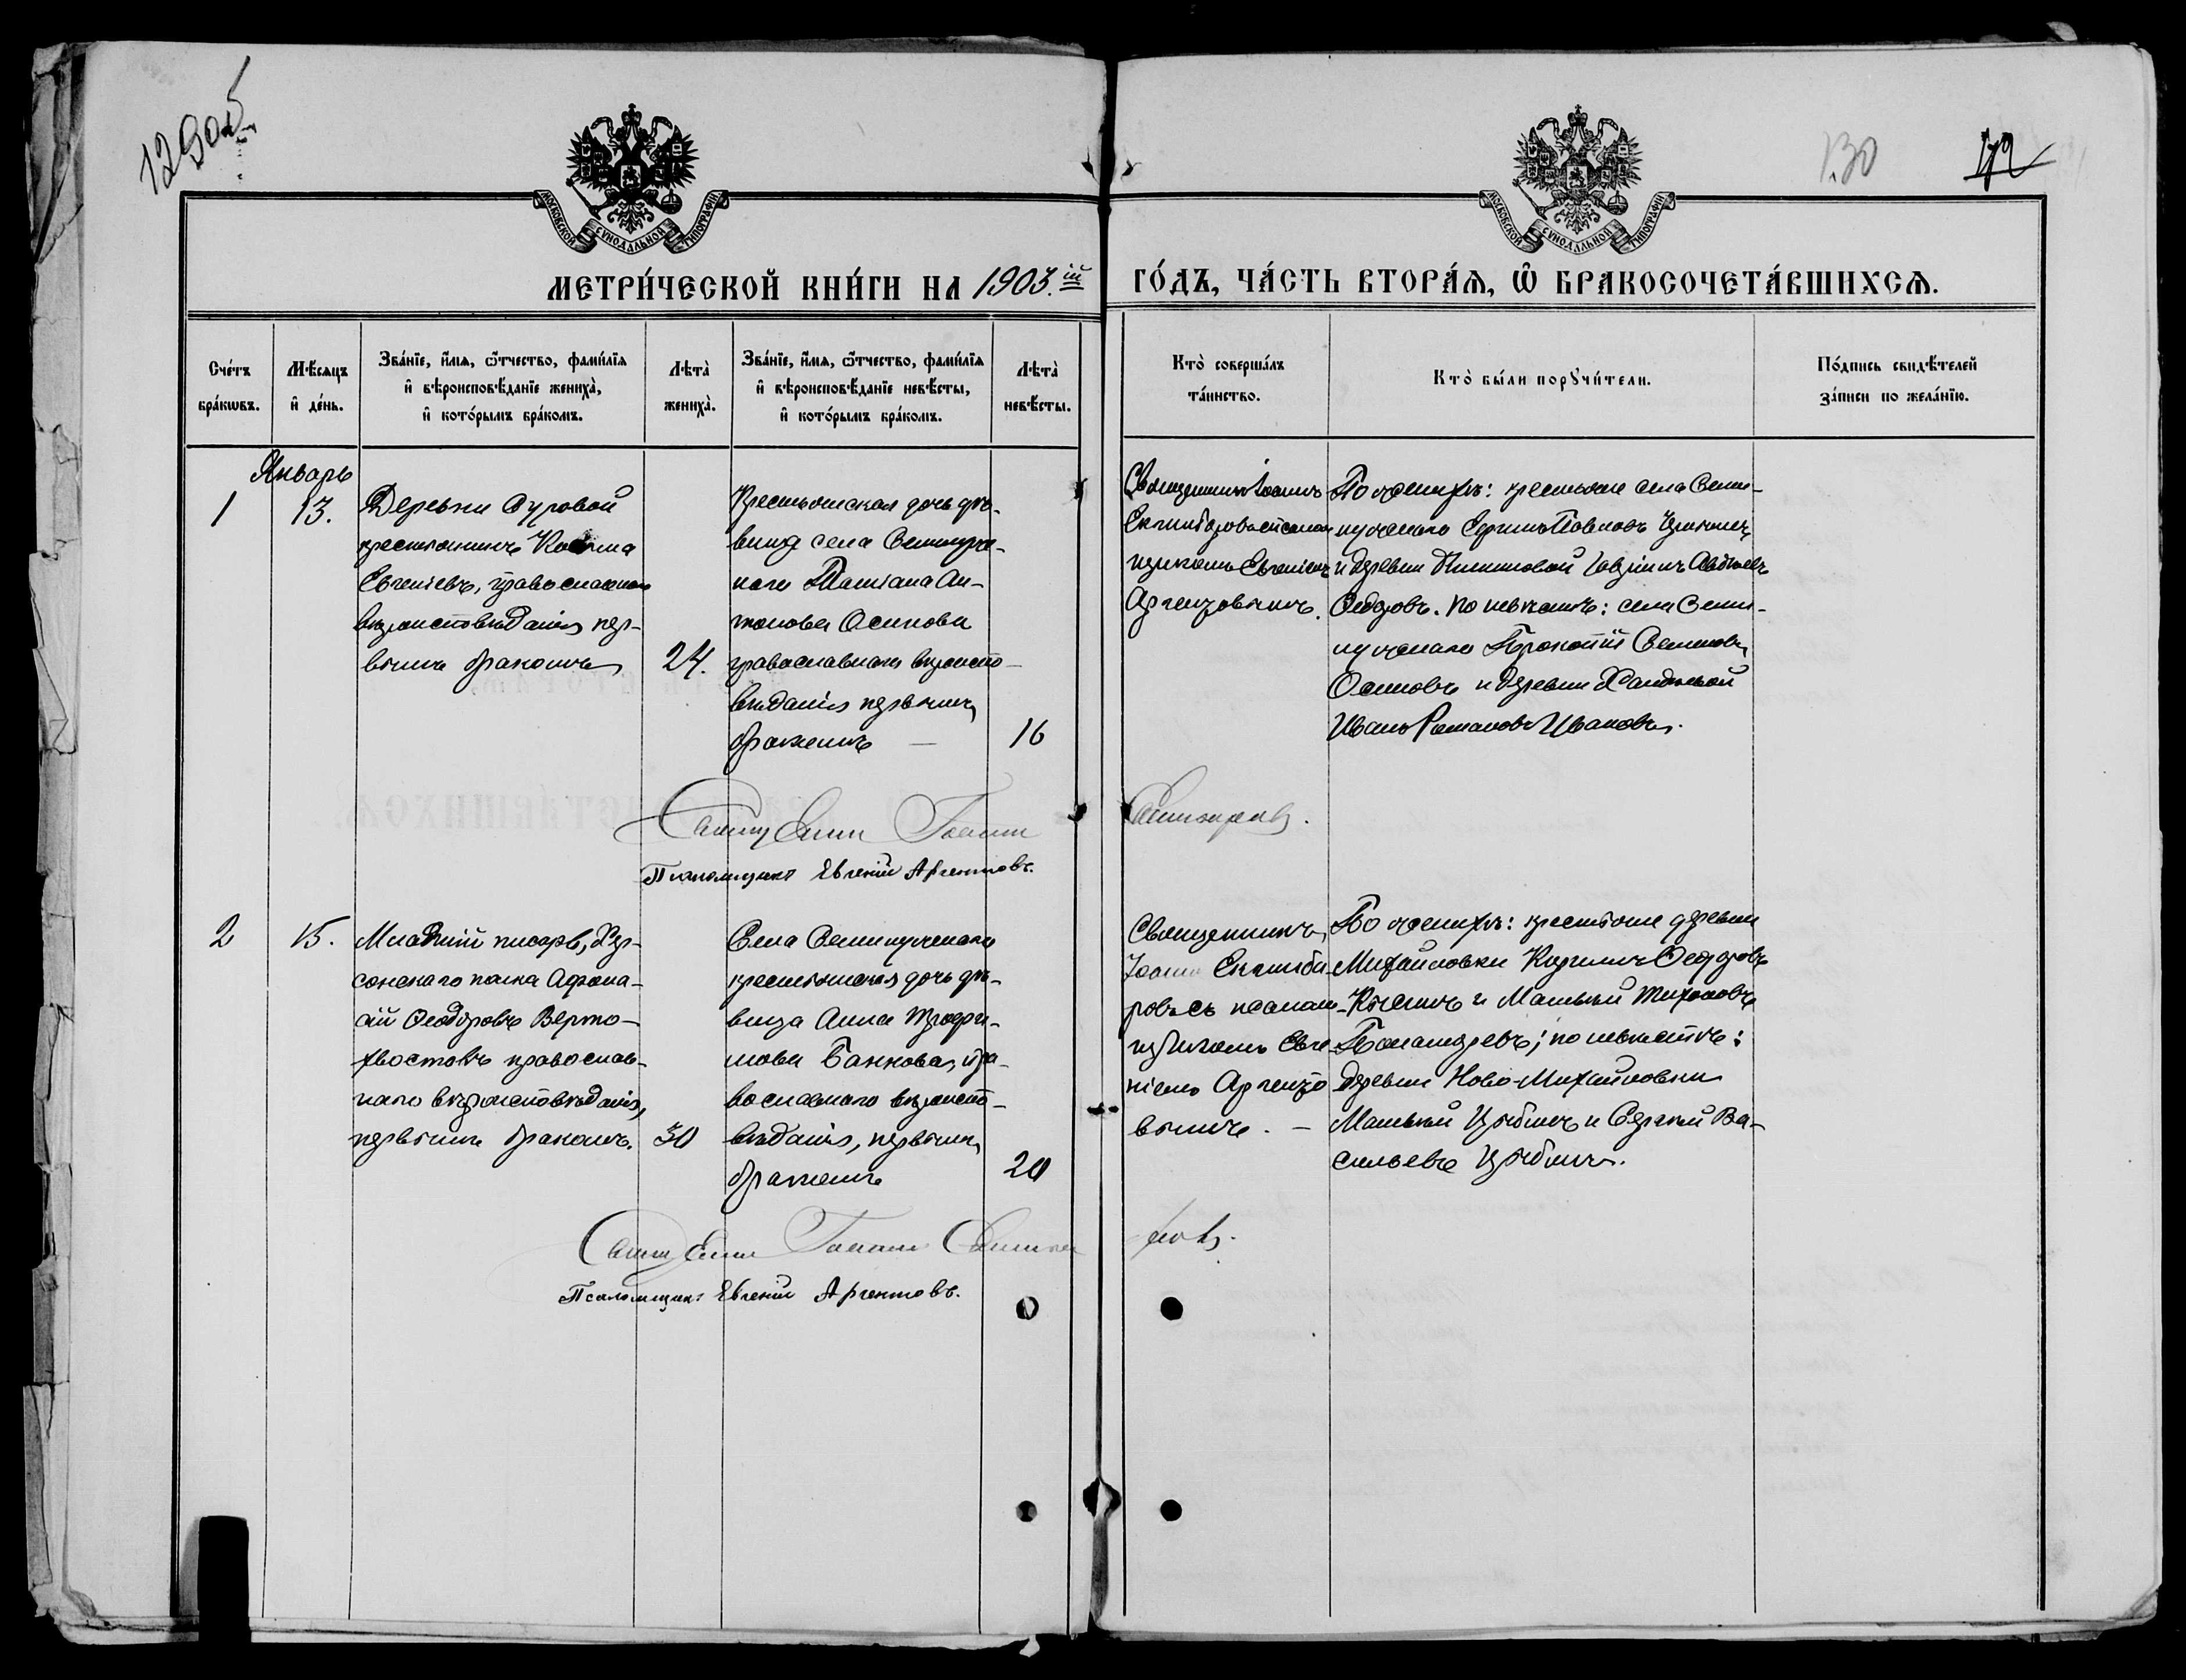 129об
130
172
МОСКОВСКОЙ СУНОДАЛЬНОЙ ТИПОГРАФІИ
МОСКОВСКОЙ СУНОДАЛЬНОЙ ТИПОГРАФІИ
МЕТРИ́ЧЕСКОЙ КНИ́ГИ НА 1903.ій ГО́ДЪ, ЧА́СТЬ ВТОРА́Я, Ѿ БРАКОСОЧЕТА́ВШИХСЯ.
Сче́тъ
бра́кѡвъ.
Мѣ́сяцъ
и҆ де́нь.
Зва́нїе, и҆́мѧ, ѻ҆́тчество, фами́лїѧ
и҆ вѣроисповѣ́данїе жениха̀,
и҆ кото́рымъ бра́комъ.
Лѣта̀
жениха̀.
Зва́нїе, и҆́мѧ, ѻ҆́тчество, фами́лїѧ
и҆ вѣроисповѣ́данїе невѣ́сты,
и҆ кото́рымъ бра́комъ.
Лѣта̀
невѣ́сты.
Кто̀ соверша́лъ
та́инство.
Кто̀ бы́ли порꙋчи́тели.
По́дпись свидѣ́телей
за́писи по жела́нїю.
Январь
1
13.
Деревни Суровой
крестьянинъ Косьма
Евгеніевъ, православнаго
вѣроисповѣданія пер-
вымъ бракомъ
24.
Крестьянская дочь дѣ-
вица села Семилуж-
наго Татіана Ан-
тонова Осипова
православнаго вѣроиспо-
вѣданія первымъ
бракомъ —
16
Священникъ Іоаннъ
псаломщикомъ Евгеніемъ
Аргентовымъ.
По женихѣ: крестьяне села Семи-
лужнаго Павловъ
и деревни Авдѣевъ
Ѳедоровъ. По невѣстѣ: села Семи-
лужнаго Прокопій Семеновъ
Осиповъ и деревни
Иванъ Романовъ Ивановъ.
Священникъ Іоаннъ
Псаломщикъ Евгеній Аргентовъ.
2
15.
Младшій писарь, Хер-
сонскаго полка Афана-
сій Ѳеодоровъ Верто-
хвостовъ православ-
наго вѣроисповѣданія,
первымъ бракомъ.
30
Села Семилужнаго
крестьянская дочь дѣ-
вица Анна Трофи-
мова Банкова, пра-
вославнаго вѣроиспо-
вѣданія, первымъ
бракомъ
20
Священникъ
Іоаннъ
ровъ съ псалом-
щикомъ Евге-
ніемъ Аргенто-
вымъ. —
По женихѣ: крестьяне деревни
Михайловки Ѳеодоровъ
и Матвѣй Тихоновъ
по невѣстѣ:
деревни Ново-Михайловки
Матвѣй и Сергѣй Ва-
сильевъ
Священникъ Іоаннъ
Псаломщикъ Евгеній Аргентовъ.